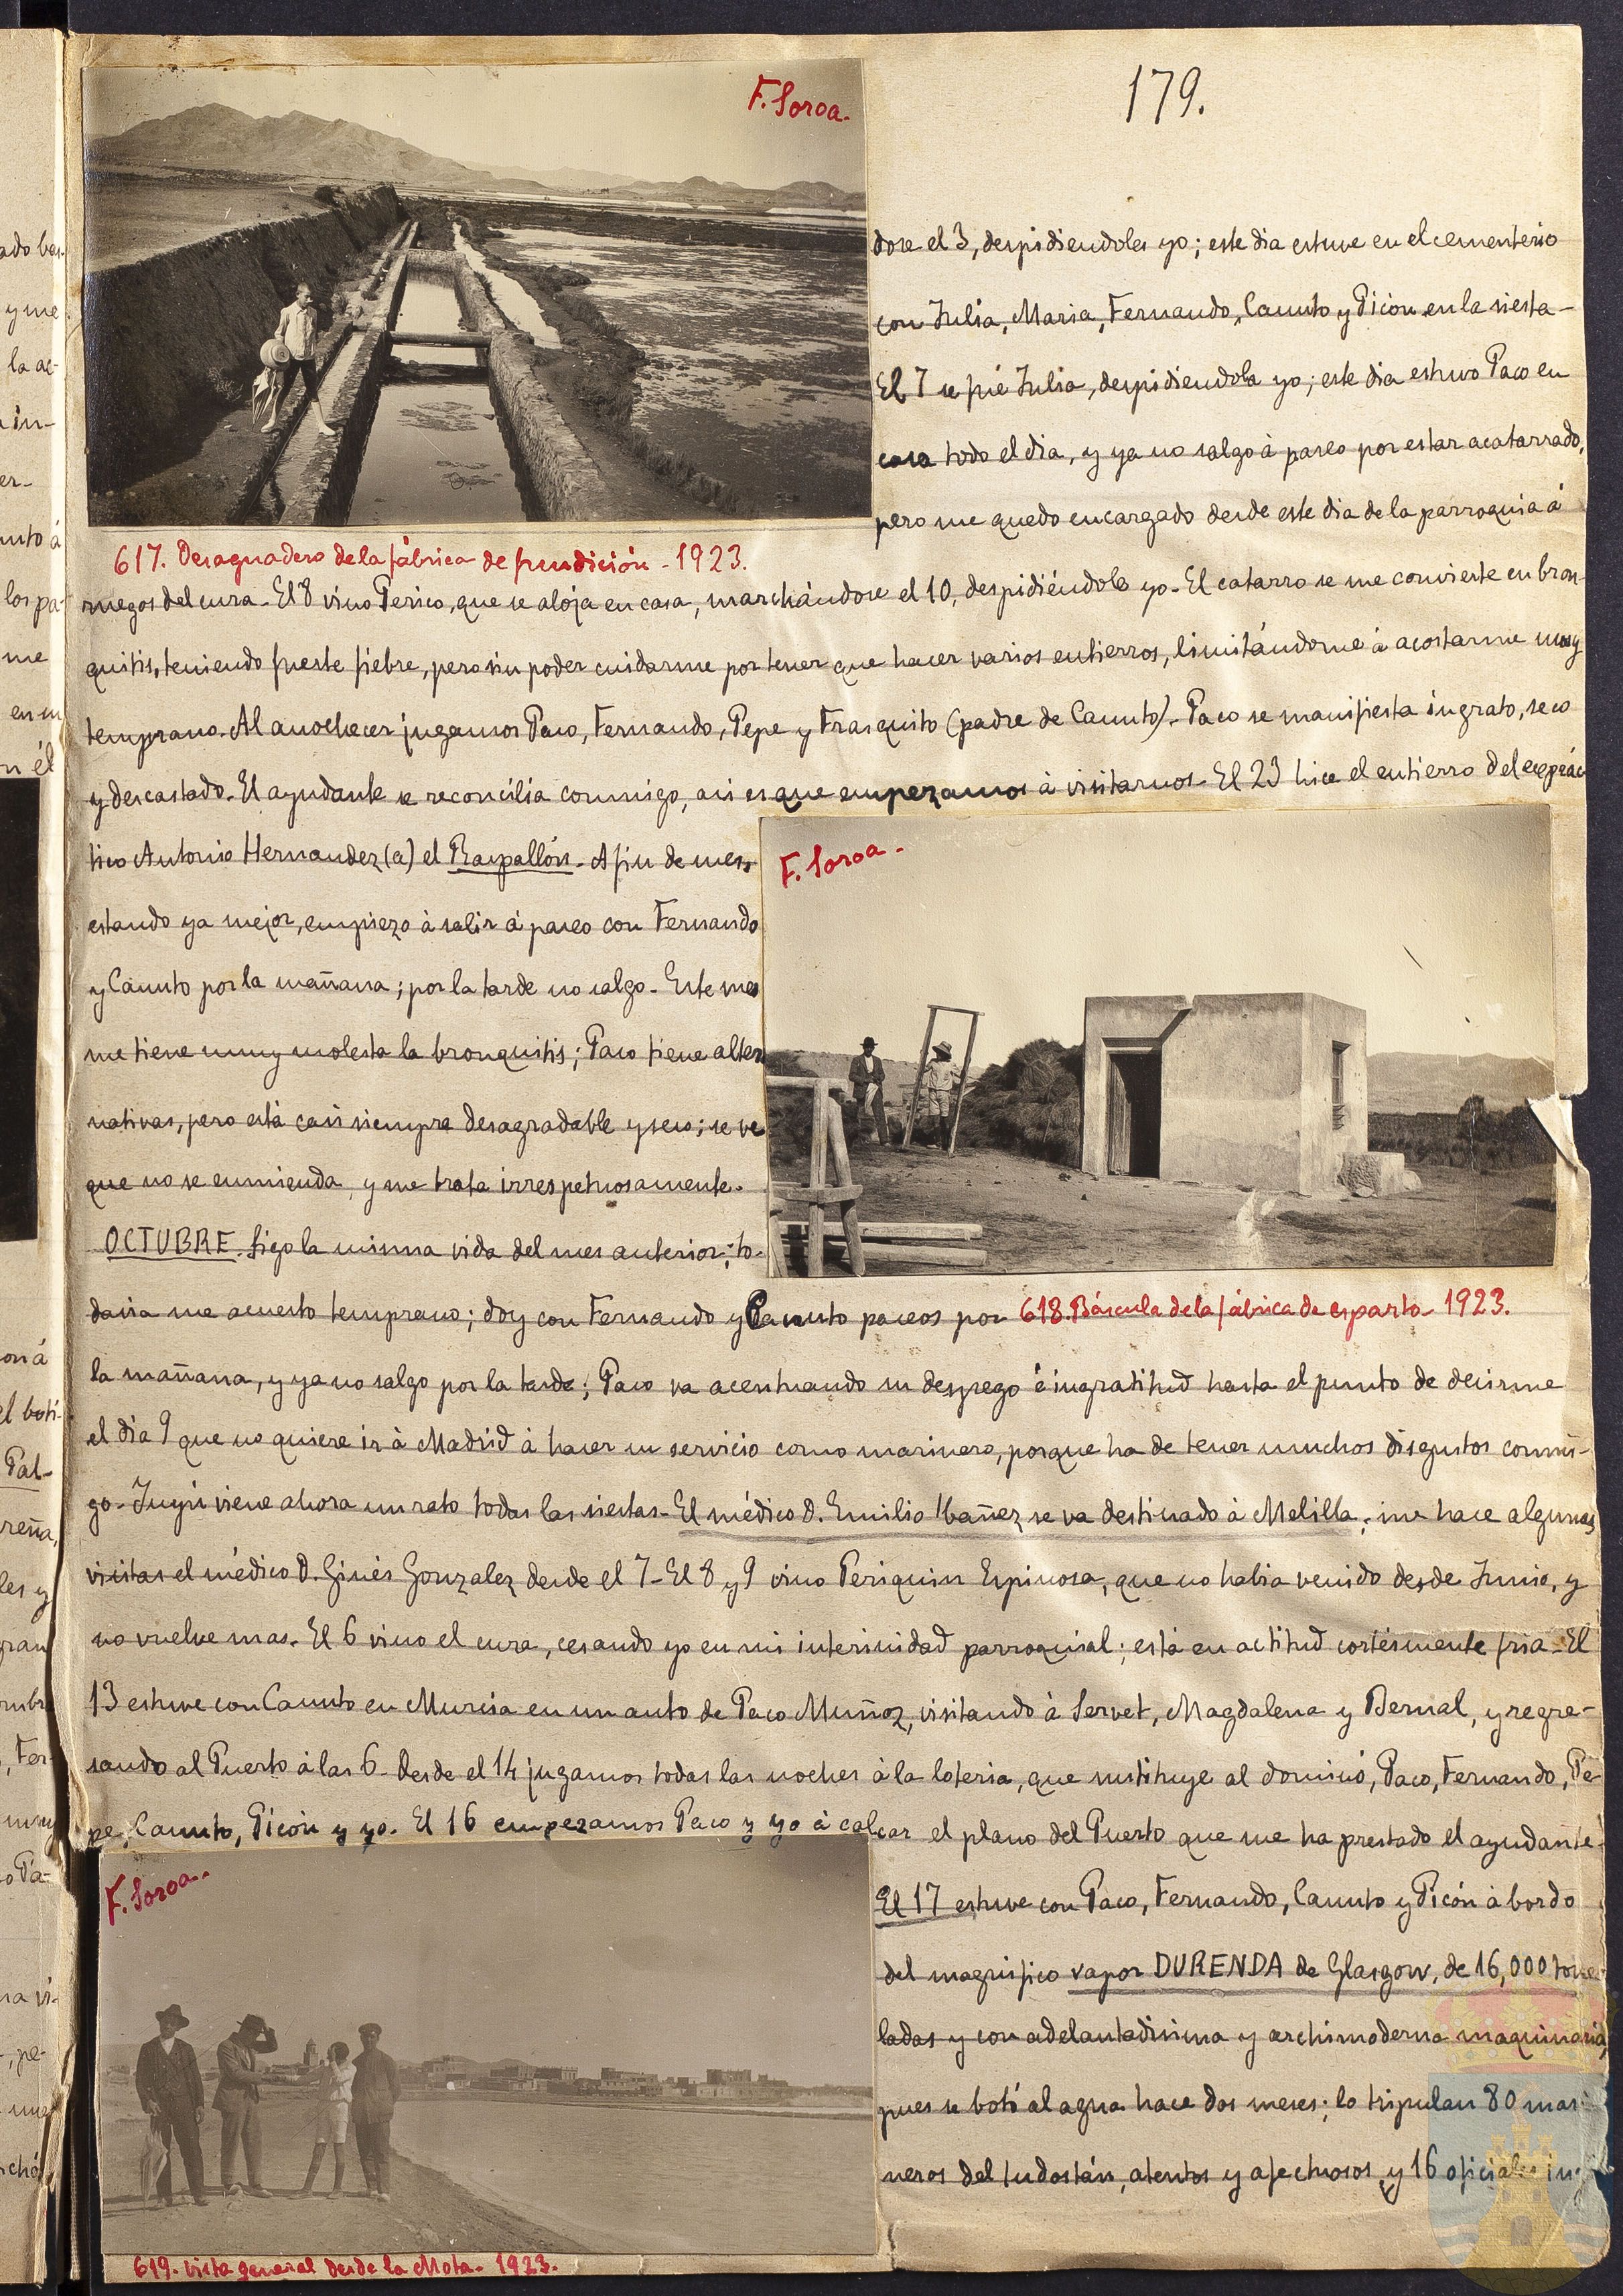 179.
F. Soroa.
dose el 3, despidiendoles yo; este dia estuve en el cementerio
con Julia, Maria, Fernando, Canuto y Picón en la siesta-
El 7 se fué Julia, despidiendola yo; este dia estuvo Paco en
casa todo el dia, y ya no salgo á paseo por estar acatarrado,
pero me quedo encargado desde este dia de la parroquia á
617. Desaguadero de la fábrica de fundición - 1923.
ruegos del cura - El 8 vino Perico, que se aloja en casa, marchándose el 10, despidiéndole yo - El catarro se me convierte en bron-
quitis, teniendo fuerte fiebre, pero sin poder cuidarme por tener que hacer varios entierros, limitándome á acostarme muy
temprano. Al anochecer jugamos Paco, Fernando, Pepe y Frasquito (padre de Canuto). Paco se manifiesta ingrato, seco
y descastado. El ayudante se reconcilia conmigo, asi es que empezamos á visitarnos - El 23 hice el entierro del
tico Antonio Hernandez (a) el Raspallón. A fin de mes,
estando ya mejor, empiezo á salir á paseo con Fernando
y Canuto por la mañana; por la tarde no salgo - Este mes
me tiene muy molesto la bronquitis; Paco tiene alter
nativas, pero está casi siempre desagradable y seco; se ve
que no se enmienda, y me trata irrespetuosamente.
F. Soroa.
OCTUBRE. Sigo la misma vida del mes anterior; to-
davia me acuesto temprano; doy con Fernando y Canuto paseos por
618. Báscula de la fábrica de esparto - 1923.
la mañana, y ya no salgo por la tarde; Paco va acentuando su despego é ingratitud hasta el punto de decirme
el dia 9 que no quiere ir á Madrid á hacer su servicio como marinero, porque ha de tener muchos disgustos conmi-
go - viene ahora un rato todas las siestas - El médico D. Emilio Ibañez se va destinado á Melilla; me hace algunas
visitas el médico D. Ginés Gonzalez desde el 7 - El 8 y 9 vino Periquin Espinosa, que no habia venido desde Junio, y
no vuelve mas - El 6 vino el cura, cesando yo en mi interinidad parroquial; está en actitud cortésmente fria - El
13 estuve con Canuto en Murcia en un auto de Paco Muñoz, visitando á Servet, Magdalena y Bernal, y regre-
sando al Puerto á las 6 - Desde el 14 jugamos todas las noches á la loteria, que sustituye al dominó, Paco, Fernando, Pe-
pe, Canuto, Picón y yo. El 16 empezamos Paco y yo á calcar el plano del Puerto que me ha prestado el ayudante-
F. Soroa.
El 17 estuve con Paco, Fernando, Canuto y Picón á bordo
del magnifico vapor DURENDA de Glasgow, de 16,000 tone-
ladas y con adelantadisima y archimoderna maquinaria,
pues se botó al agua hace dos meses; lo tripulan 80 mari
neros del Indostán, atentos y afectuosos, y 16 oficiales
619. Vista general desde la Mota - 1923.